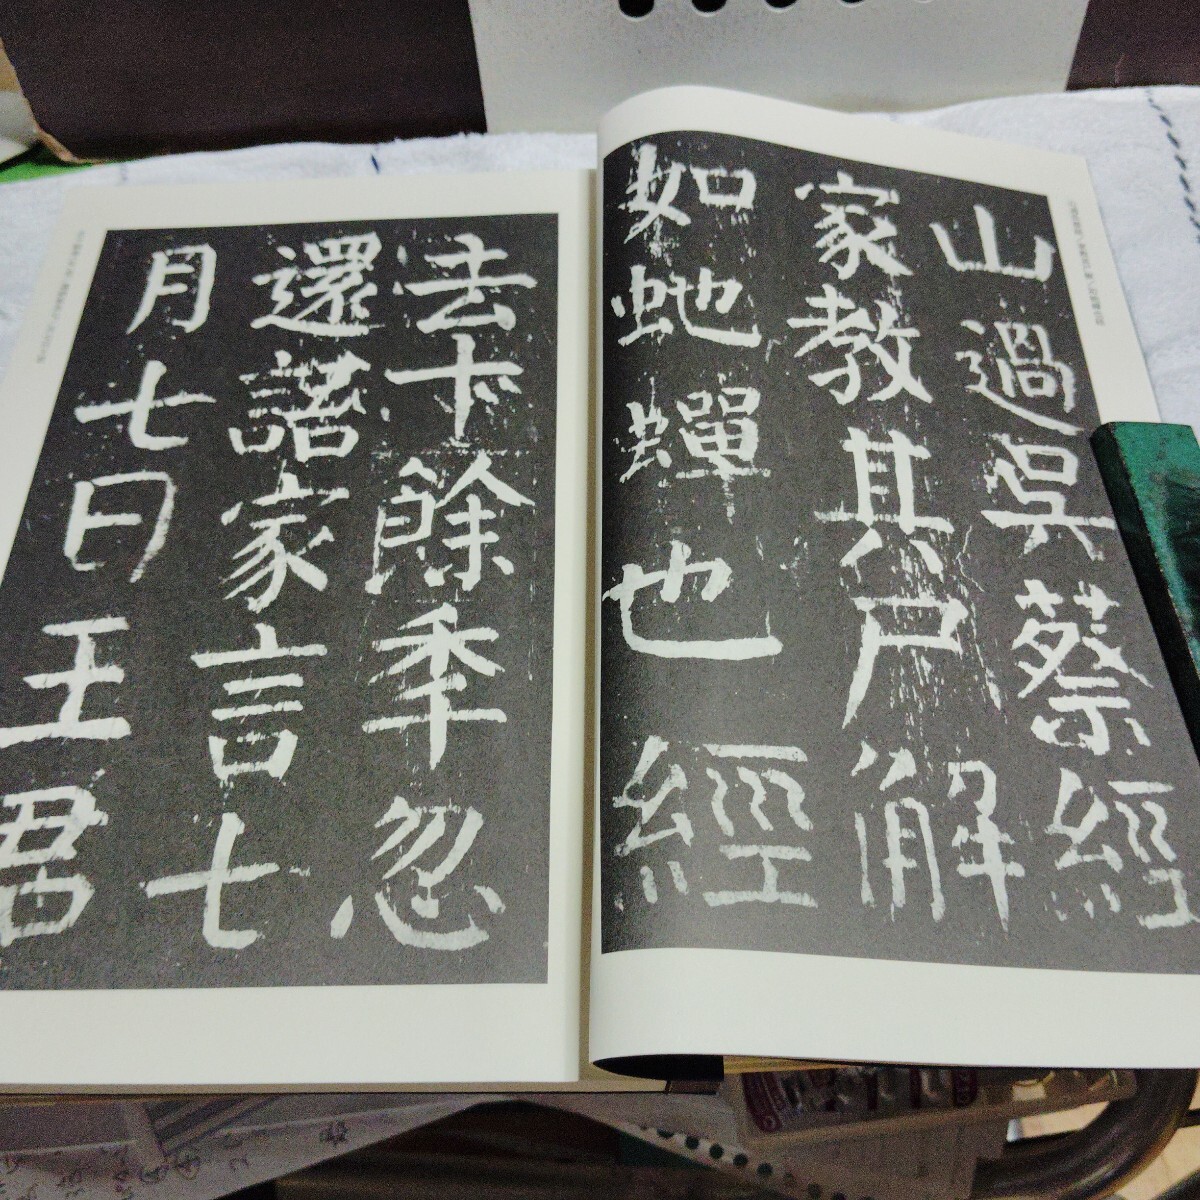 山過吳蔡經
家教其尸解
如虵蟬也經
去卞餘秊忽
還語家言七
月七日王君